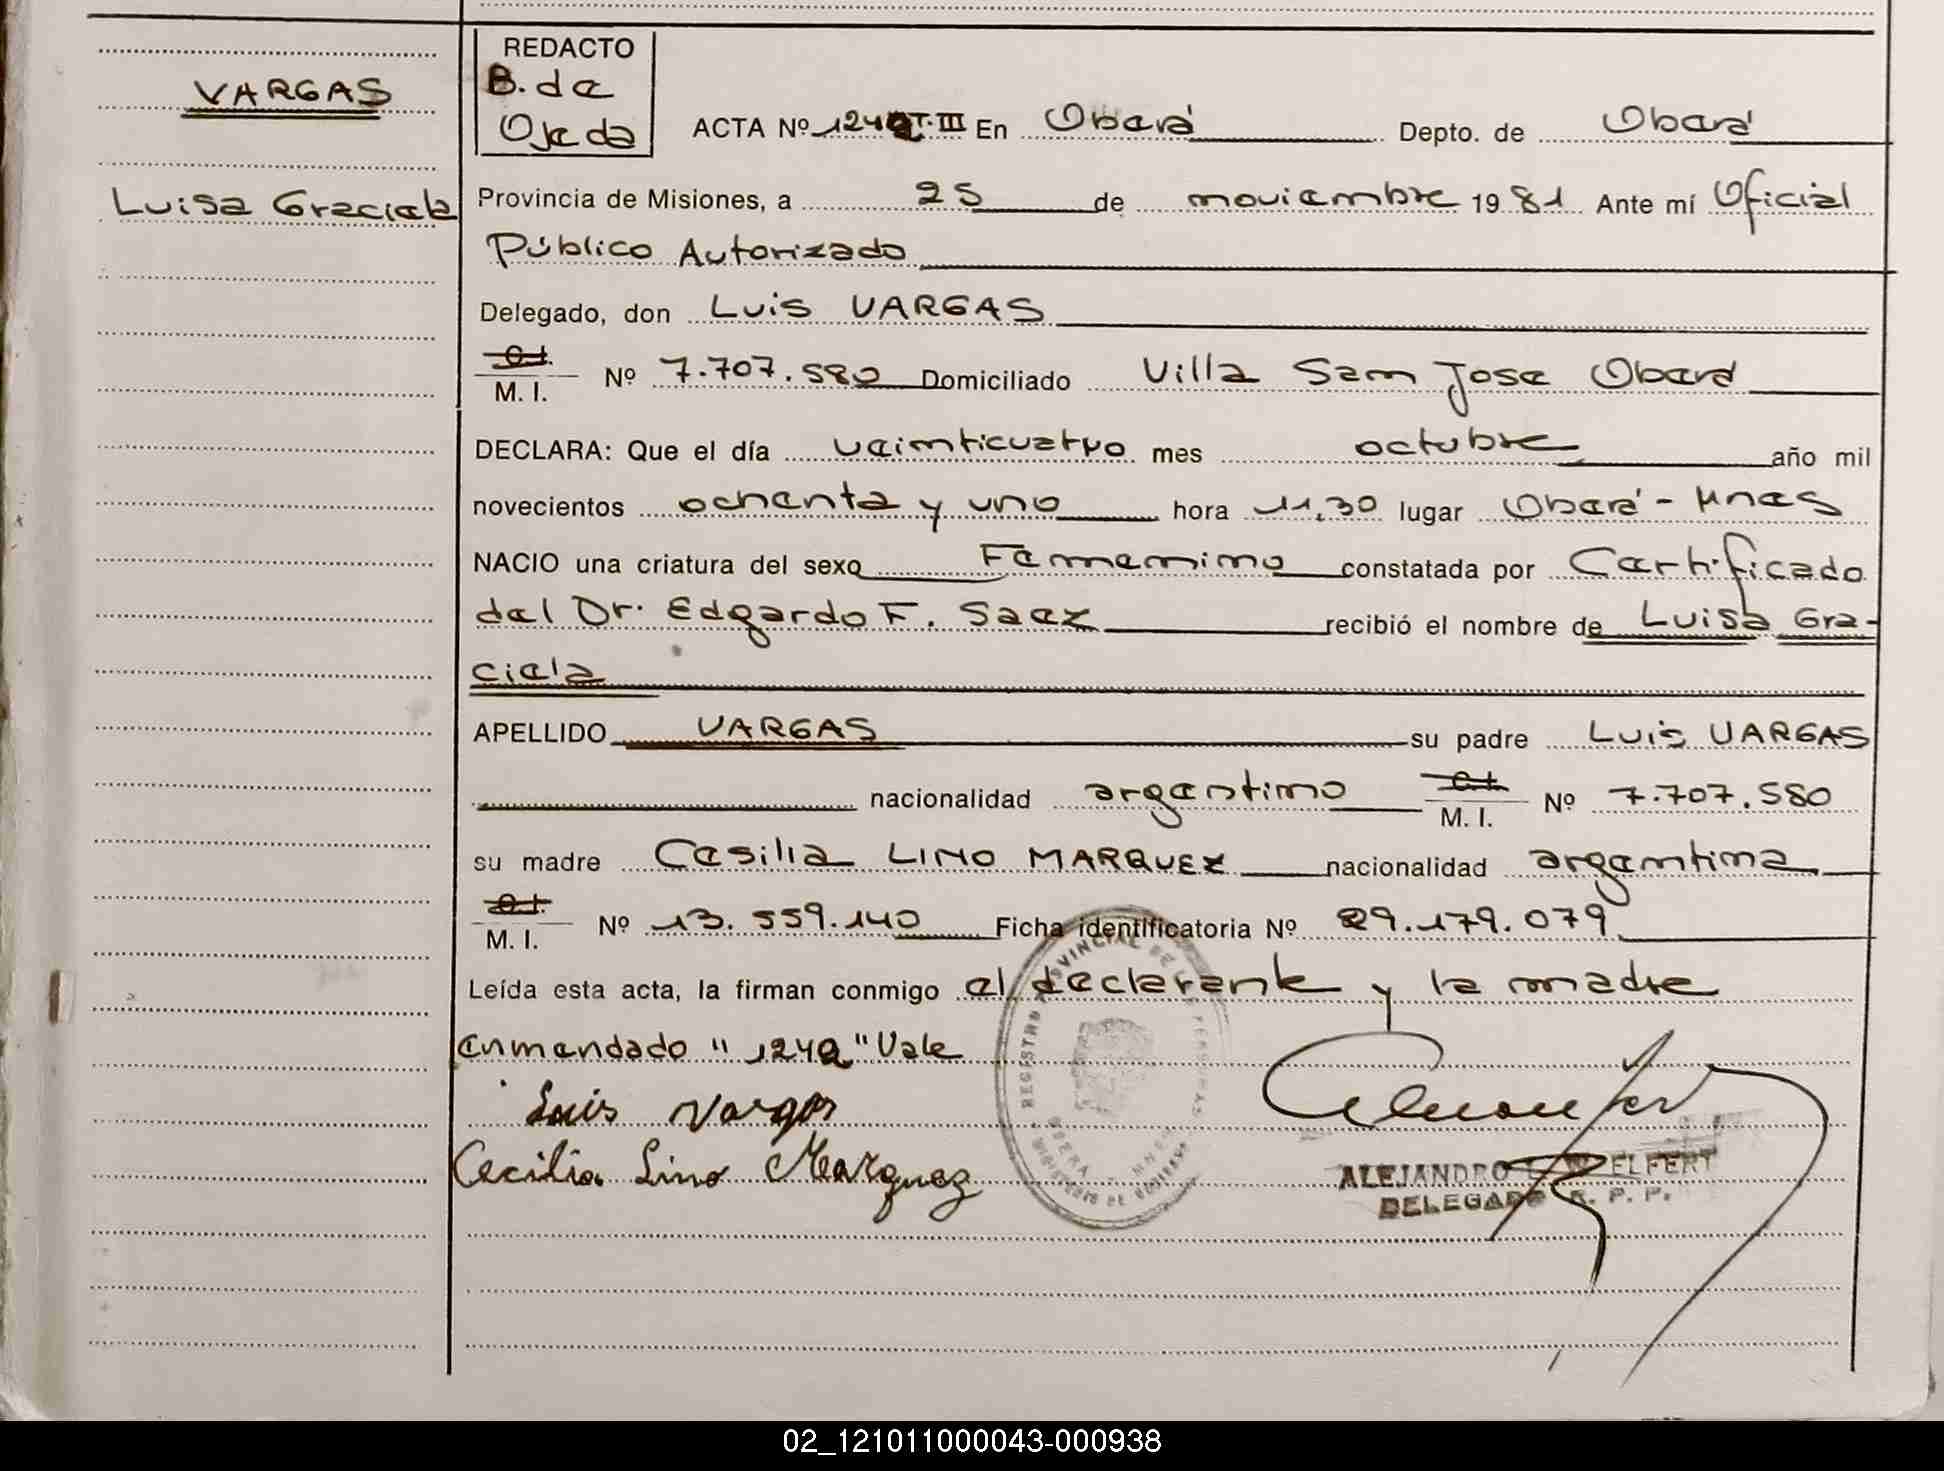 VARGAS
Luisa Graciela
REDACTO
B. de
Ojeda
ACTA Nº 1242 T. III En Oberá Depto. de Oberá
Provincia de Misiones, a 25 de noviembre 1981 Ante mí Oficial
Público Autorizado
Delegado, don Luis VARGAS
C.I.
M. I. Nº 7.707.580 Domiciliado Villa San Jose Oberá
DECLARA: Que el día veinticuatro mes octubre año mil
novecientos ochenta y uno hora 11,30 lugar Oberá - Mnes
NACIO una criatura del sexo Femenino constatada por Certificado
del Dr. Edgardo F. Saez recibió el nombre de Luisa Gra-
ciela
APELLIDO VARGAS su padre Luis VARGAS
nacionalidad argentino C.I. M. I. Nº 7.707.580
su madre Cesilia LINO MARQUEZ nacionalidad argentina
C.I.
M. I. Nº 13.559.140 Ficha identificatoria Nº 29.179.079
Leída esta acta, la firman conmigo el declarante y la madre
enmendado "1242" Vale
Luis Vargas
Cecilia Lino Marquez
REGISTRO PROVINCIAL DE LAS PERSONAS
OBERA - MNES
ALEJANDRO WELFERT
DELEGADO R. P. P.
02_121011000043-000938